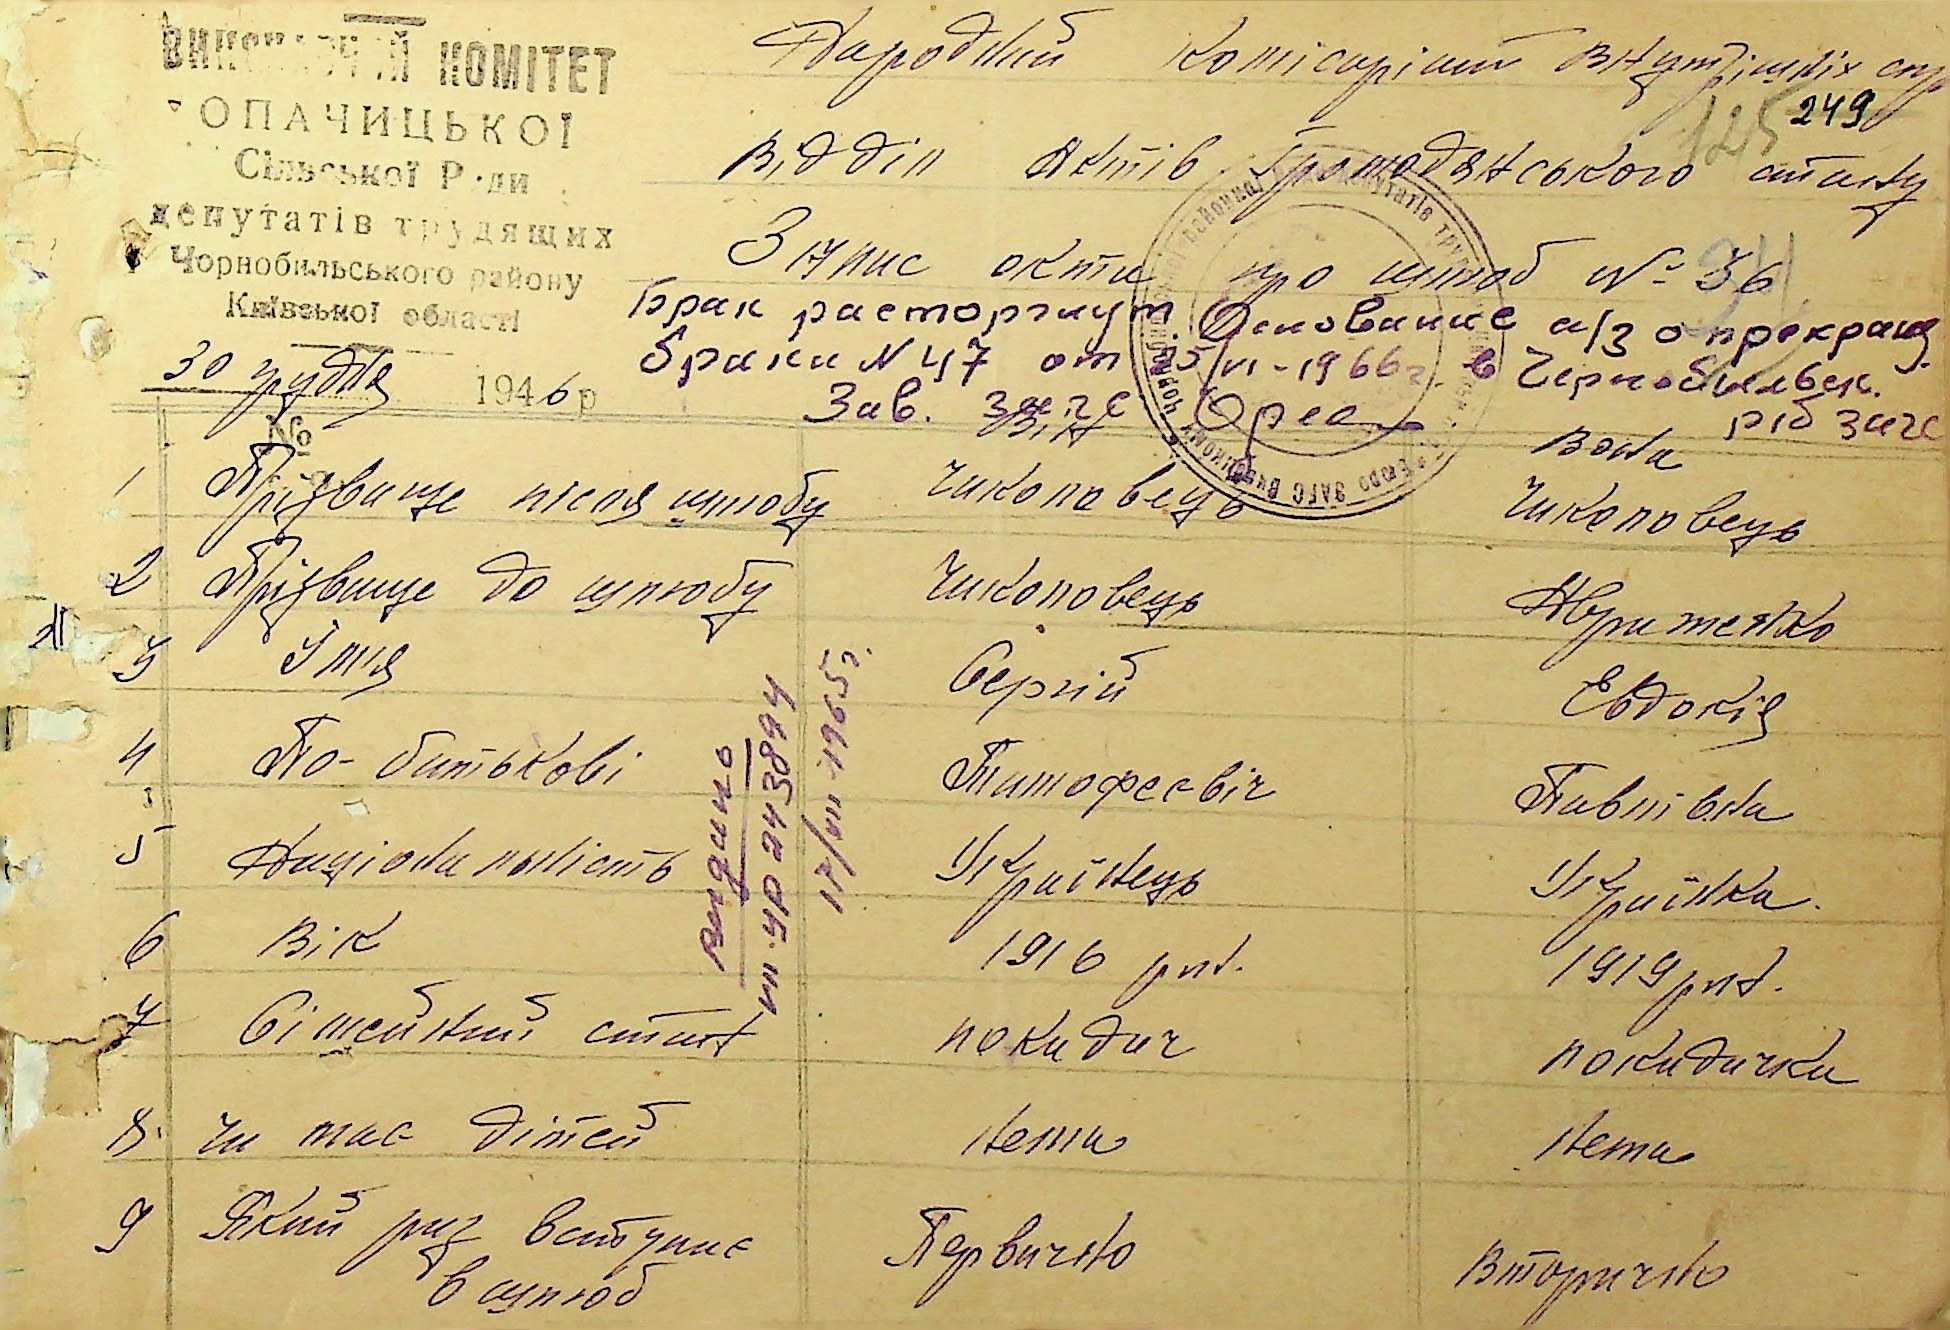 ВИКОНАВЧИЙ КОМІТЕТ
ОПАЧИЦЬКОЇ
Сільської Ради
депутатів трудящих
Чорнобильського району
Київської області
30 грудня 1946 р
Народний Комісаріат Внутрішніх спр
249
125
Відділ Актів Громадянського стану
Запис акта про шлюб № 36
Брак расторгнут Основание а/з о прекращ.
брака N 47 от 25/VI-1966 г. в Чернобыльск.
Зав. загс
рів загс
№ Він Вона
1 Прізвище після шлюбу Чиколовець Чиколовець
2 Прізвище до шлюбу Чиколовець
3 Імя Сергій Евдокія
4 По-батькові Тимофеєвіч Павлівна
5 Національність Українець Українка.
6 Вік 1916 рнд. 1919 рнд.
7 Сімейний стан
8. Чи має дітей Нема Нема
9 Який раз вступає Первично Вторично
в шлюб
Видано
УР 243894
17/VII-1965 г.